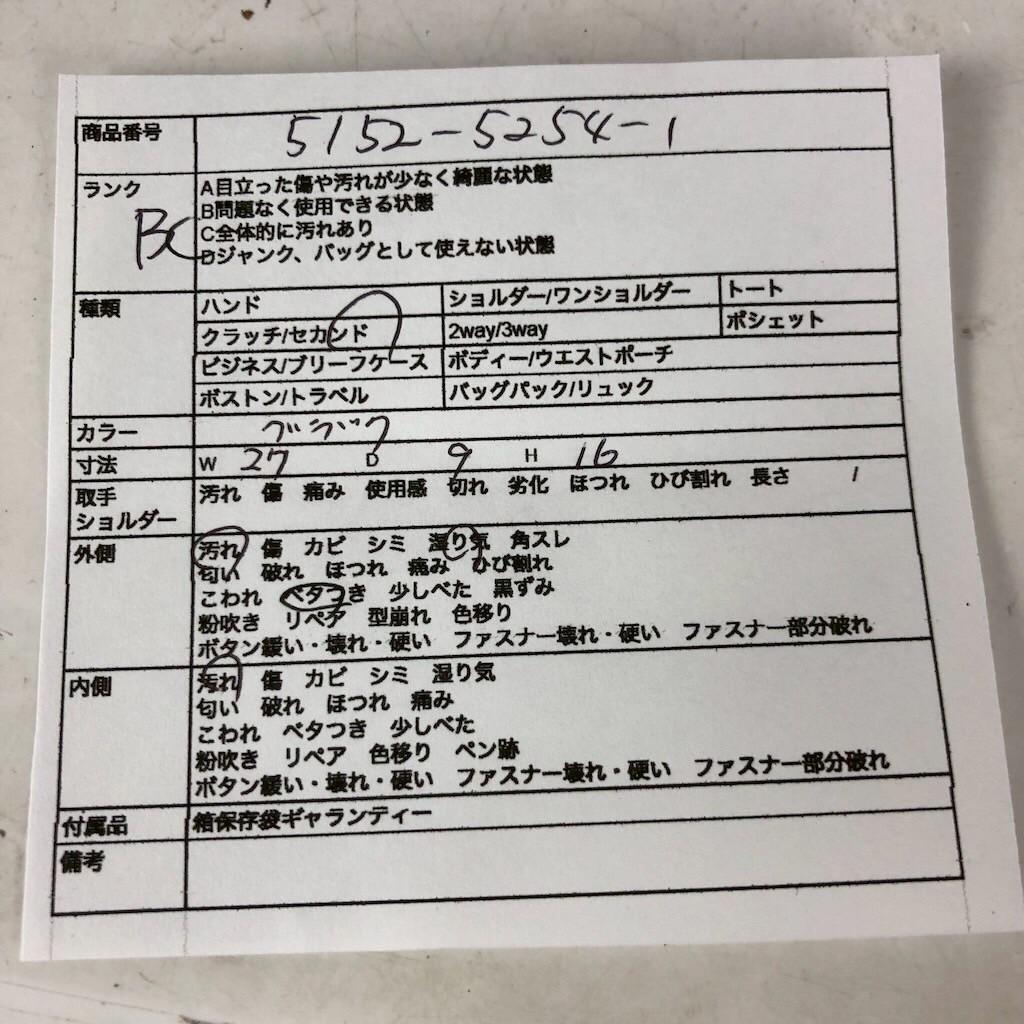 商品番号 5152-5254-1
ランク BC
A目立った傷や汚れが少なく綺麗な状態
B問題なく使用できる状態
C全体的に汚れあり
Dジャンク、バッグとして使えない状態
種類 ハンド ショルダー/ワンショルダー トート
クラッチ/セカンド 2way/3way ポシェット
ビジネス/ブリーフケース ボディー/ウエストポーチ
ボストン/トラベル バッグパック/リュック
カラー ブラック
寸法 W 27 D 9 H 16
取手 汚れ 傷 痛み 使用感 切れ 劣化 ほつれ ひび割れ 長さ /
ショルダー
外側 汚れ 傷 カビ シミ 湿り気 角スレ
匂い 破れ ほつれ 痛み ひび割れ
こわれ ベタつき 少しべた 黒ずみ
粉吹き リペア 型崩れ 色移り
ボタン緩い・壊れ・硬い ファスナー壊れ・硬い ファスナー部分破れ
内側 汚れ 傷 カビ シミ 湿り気
匂い 破れ ほつれ 痛み
こわれ ベタつき 少しべた
粉吹き リペア 色移り ペン跡
ボタン緩い・壊れ・硬い ファスナー壊れ・硬い ファスナー部分破れ
付属品 箱保存袋ギャランティー
備考